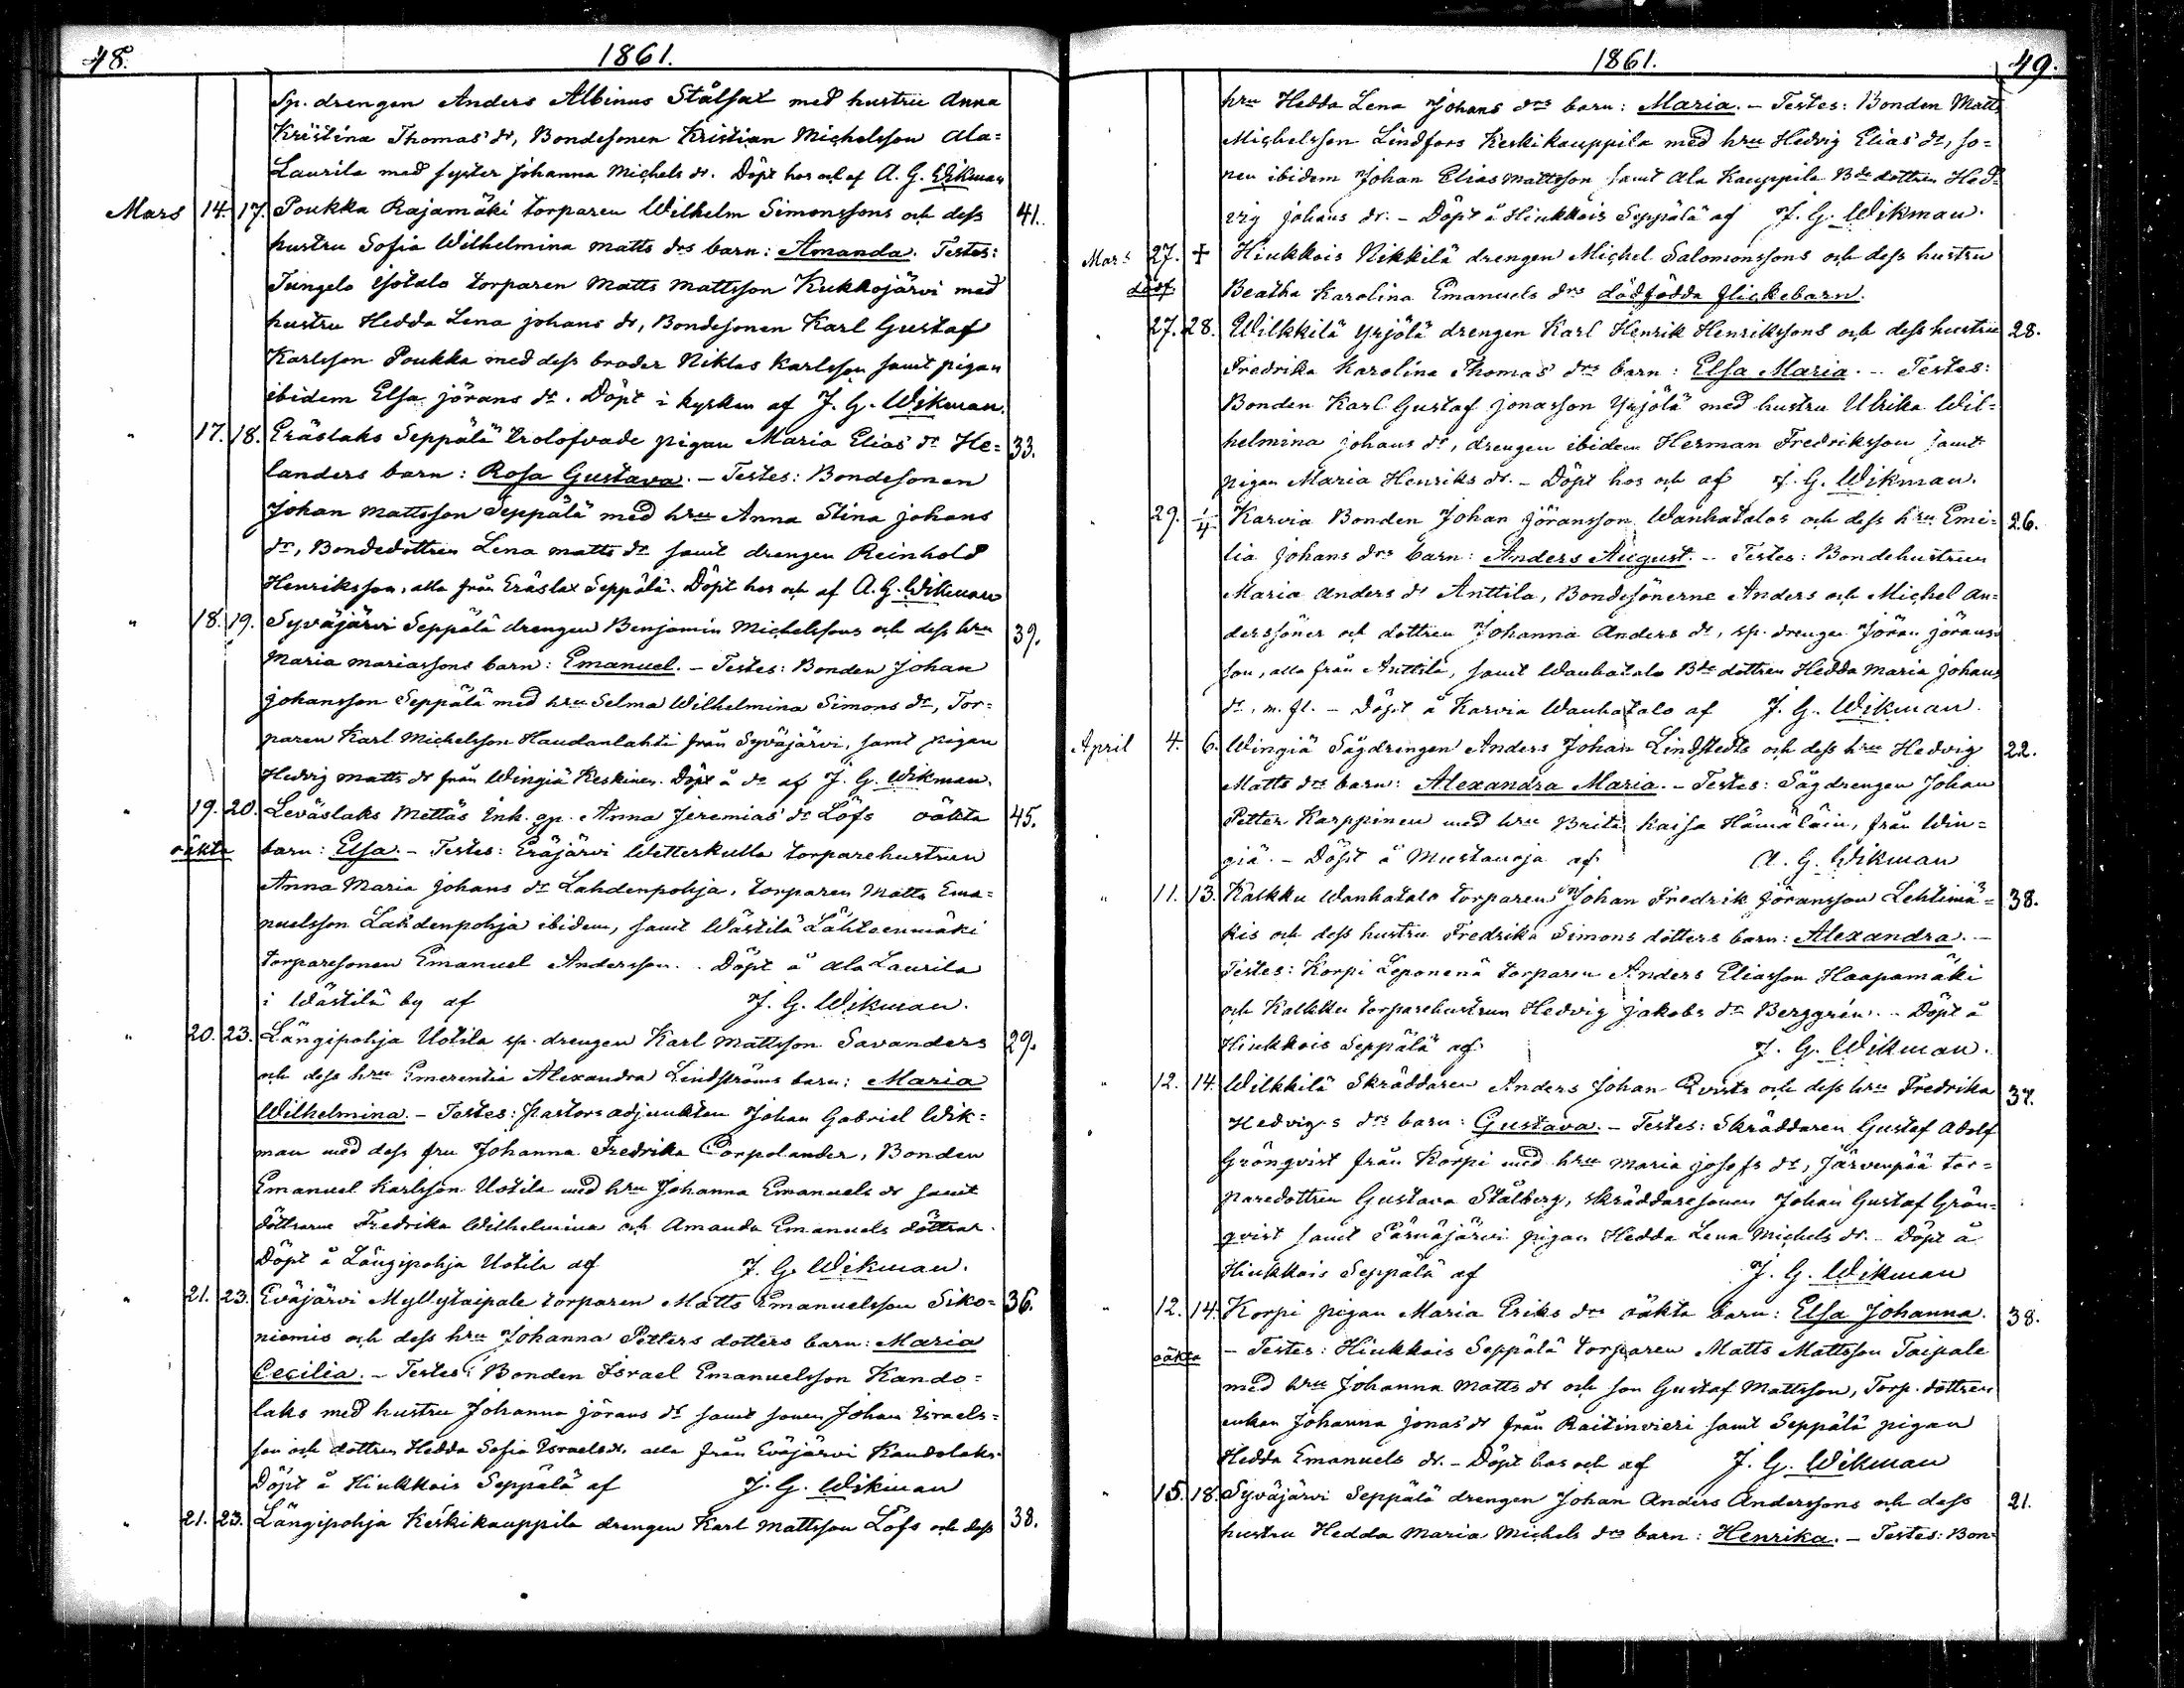 48.
1861.
Sp. drengen Anders Albinus Stålsat med hustru Anna
Kristina Thomas dr, Bondesonen Kristian Michelsson Ala=
Laurila med syster Johanna Michels dr. Döpt hos och af A. G. Wikman
Mars 14. 17. Poukka Rajamäki torparen Wilhelm Simonssons och dess 41.
hustru Sofia Wilhelmina Matts drs barn: Amanda. Testes:
Isotalo torparen Matts Mattsson Kukkojärvi med
hustru Hedda Lena Johans dr, Bondesonen Karl Gustaf
Karlsson Poukka med dess broder Niklas Karlsson samt pigan
ibidem Elsa Jörans dr. Döpt i kyrkan af J. G. Wikman.
" 17. 18. Eräslaks Seppälä trolofvade pigan Maria Elias dr He= 33.
landers barn: Rosa Gustava. – Testes: Bondesonen
Johan Mattsson Seppälä med hru Anna Stina Johans
dr, Bondedottren Lena Matts dr samt drengen Reinhold
Henriksson, alla från Eräslax Seppälä. Döpt hos och af A. G. Wikman
" 18. 19. Syväjärvi Seppälä drengen Benjamin Michelssons och dess hru 39.
Maria Mariassons barn: Emanuel. – Testes: Bonden Johan
Johansson Seppälä med hru Selma Wilhelmina Simons dr, Tor=
paren Karl Michelsson Haudanlahti från Syväjärvi, samt pigan
Hedvig Matts dr från Wingiä Keskinen. Döpt å do af J. G. Wikman.
" 19. 20. Leväslaks Mettäs Inh. gp. Anna Jeremias dr Löfs oäkta 45.
oäkta barn: Elsa. – Testes: Eräjärvi Wetterkulla torparehustrun
Anna Maria Johans dr Lahdenpohja, torparen Matts Ema=
nuelsson Lahdenpohja ibidem, samt Wästilä Lähteenmäki
torparesonen Emanuel Andersson. Döpt å Ala Laurila
i Wästilä by af J. G. Wikman.
" 20. 23. Längipohja Uotila sp. drengen Karl Mattsson Savanders 29.
och dess hru Emerentia Alexandra Lindströms barn: Maria
Wilhelmina. – Testes: Pastorsadjunkten Johan Gabriel Wik=
man med dess fru Johanna Fredrika Corpolander, Bonden
Emanuel Karlsson Uotila med hru Johanna Emanuels dr samt
döttrarne Fredrika Wilhelmina och Amanda Emanuels döttrar.
Döpt å Längipohja Uotila af J. G. Wikman.
" 21. 23. Eväjärvi Myllytaipale torparen Matts Emanuelsson Siko= 36.
niemis och dess hru Johanna Petters dotters barn: Maria
Cecilia. – Testes: Bonden Israel Emanuelsson Kando=
laks med hustru Johanna Jörans dr samt sonen Johan Israels=
son och dottren Hedda Sofia Israels dr, alla från Eväjärvi Kandolaks.
Döpt å Hiukkois Seppälä af J. G. Wikman
" 21. 23. Längipohja Keskikauppila drengen Karl Mattsson Löfs och dess 38.
1861.
49.
hru Hedda Lena Johans drs barn: Maria. – Testes: Bonden Matts
Michelsson Lindfors Keskikauppila med hru Hedvig Elias dr, so=
nen ibidem Johan Elias Mattsson samt Ala Kauppila Bde dottren Hed=
vig Johans dr. – Döpt å Hiukkois Seppälä af J. G. Wikman.
Mars 27. + Hiukkois Nikkilä drengen Michel Salomonssons och dess hustru
dödf. Beatha Karolina Emanuels drs dödfödda flickebarn.
" 27. 28. Wilkkilä Yrjölä drengen Karl Henrik Henrikssons och dess hustru 28.
Fredrika Karolina Thomas drs barn: Elsa Maria. – Testes:
Bonden Karl Gustaf Jonasson Yrjölä med hustru Ulrika Wil=
helmina Johans dr, drengen ibidem Herman Fredriksson samt
pigan Maria Henriks dr. – Döpt hos och af J. G. Wikman.
" 29. 1/4. Karvia Bonden Johan Jöransson Wanhatalos och dess hru Emi= 26.
lia Johans drs barn: Anders August. – Testes: Bondehustrun
Maria Anders dr Anttila, Bondesönerne Anders och Michel An=
derssöner och dottren Johanna Anders dr, sp. drengen Jöran Jörans=
son, alla från Anttila, samt Wanhatalo Bde dottren Hedda Maria Johans
dr, m. fl. – Döpt å Karvia Wanhatalo af J. G. Wikman.
April 4. 6. Wingiä Sågdrengen Anders Johan Lindstedts och dess hru Hedvig 22.
Matts drs barn: Alexandra Maria. – Testes: Sågdrengen Johan
Petter Karppinen med hru Brita Kaisa Hämäläin, från Win=
giä. – Döpt å Mustanoja af A. G. Wikman
" 11. 13. Kalkku Wanhatalo torparen Johan Fredrik Jöransson Lehtimä= 38.
kis och dess hustru Fredrika Simons dotters barn: Alexandra. –
Testes: Korpi Leponenä torparen Anders Eliasson Haapamäki
och Kalkku torparehustrun Hedvig Jakobs dr Berggrén. – Döpt å
Hiukkois Seppälä af J. G. Wikman.
" 12. 14. Wilkkilä Skräddaren Anders Johan Qvists och dess hru Fredrika 37.
Hedvigs drs barn: Gustava. – Testes: Skräddaren Gustaf Adolf
Grönqvist från Korpi med hru Maria Josefs dr, Järvenpää tor=
paredottren Gustava Stålberg, skräddaresonen Johan Gustaf Grön=
qvist samt Särnäjärvi pigan Hedda Lena Michels dr. – Döpt å
Hiukkois Seppälä af J. G. Wikman
" 12. 14. Korpi pigan Maria Eriks drs oäkta barn: Elsa Johanna. 38.
oäkta – Testes: Hiukkois Seppälä torparen Matts Mattsson Taipale
med hru Johanna Matts dr och son Gustaf Mattsson, Torp. dottren
enkan Johanna Jonas dr från Raitinvieri samt Seppälä pigan
Hedda Emanuels dr. – Döpt hos och af J. G. Wikman
" 15. 18. Syväjärvi Seppälä drengen Johan Anders Anderssons och dess 21.
hustru Hedda Maria Michels drs barn: Henrika. – Testes: Bon=